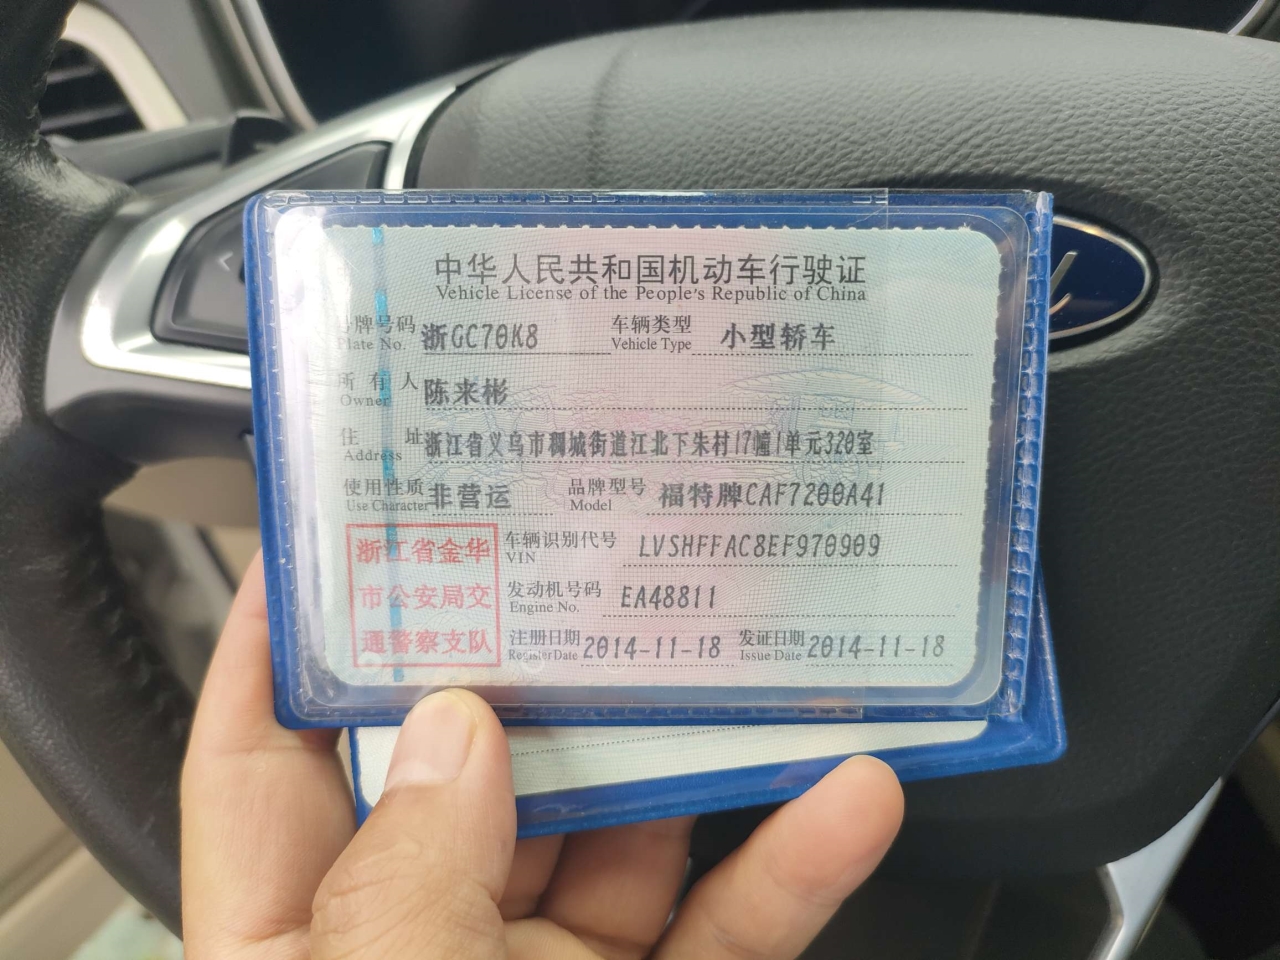 中华人民共和国机动车行驶证
Vehicle License of the People's Republic of China
号牌号码 浙GC70K8 车辆类型 小型轿车
Plate No. Vehicle Type
所有人 陈来彬
Owner
住址 浙江省义乌市稠城街道江北下朱村17幢1单元320室
Address
使用性质 非营运 品牌型号 福特牌CAF7200A41
Use Character Model
浙江省金华
市公安局交
通警察支队
车辆识别代号 LVSHFFAC8EF970909
VIN
发动机号码 EA48811
Engine No.
注册日期 2014-11-18 发证日期 2014-11-18
Register Date Issue Date